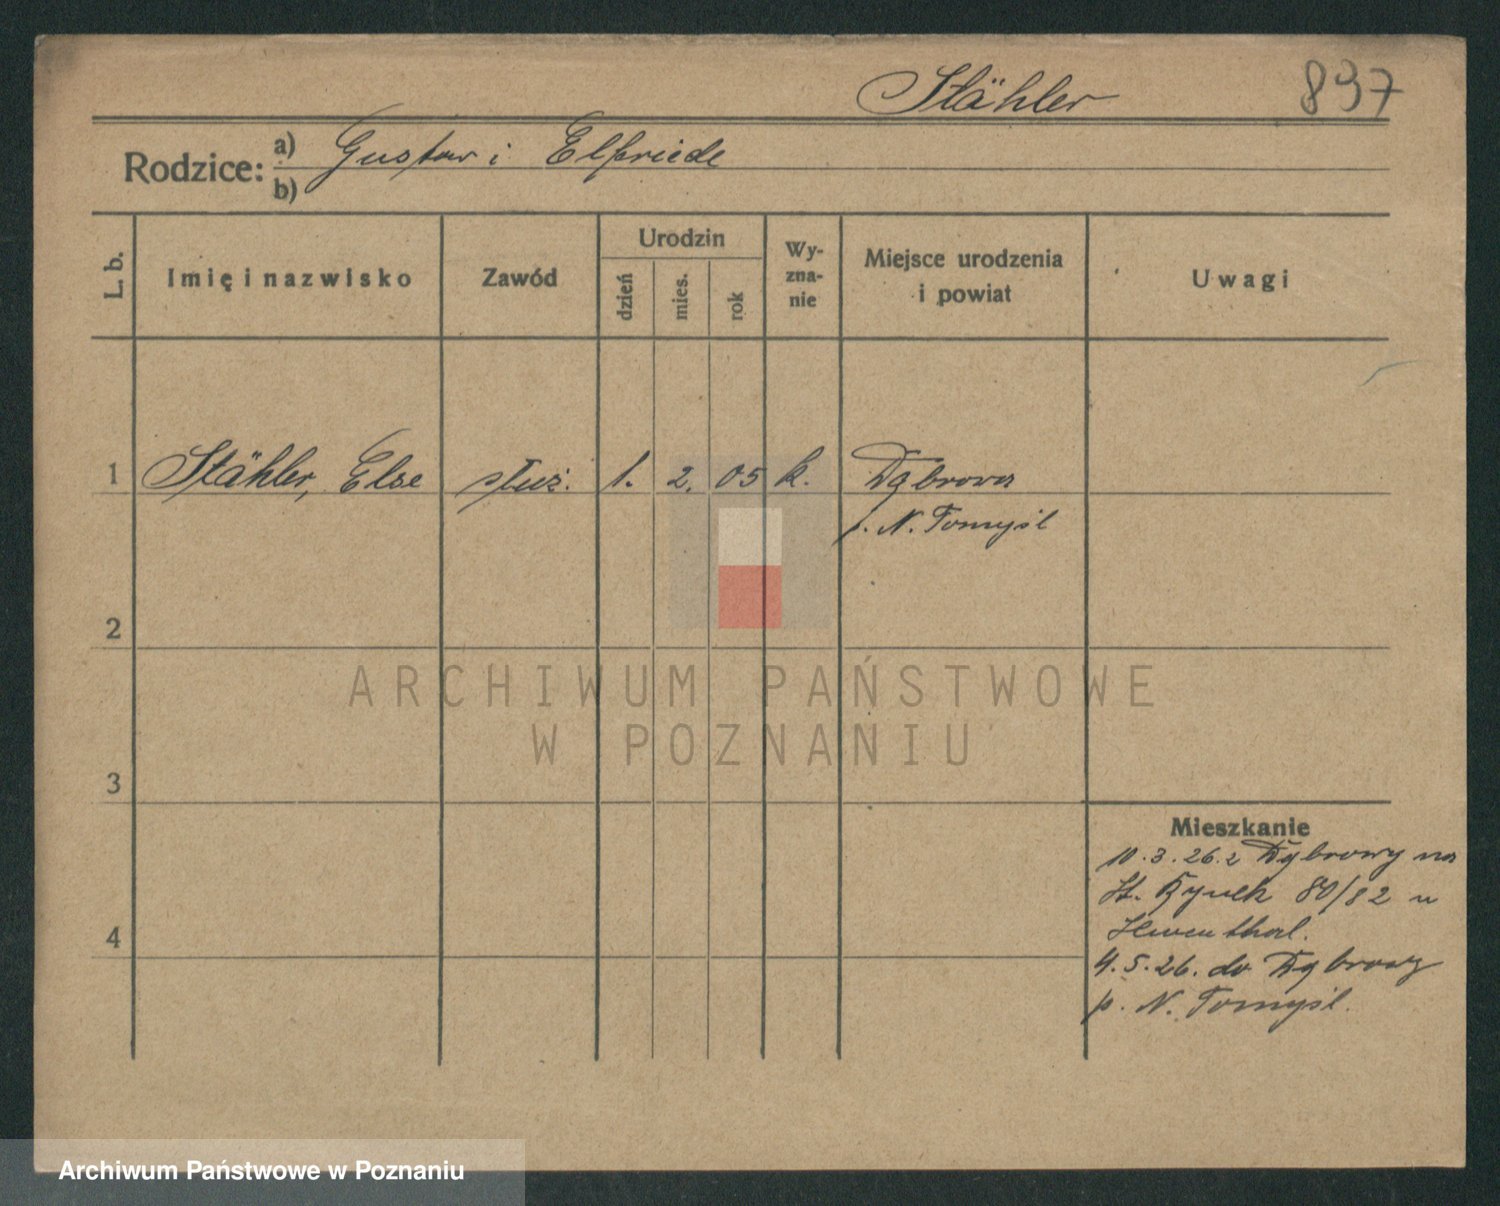 Stähler 897
Rodzice: a) Gustaw i Elfriede
b)
L. b. Imię i nazwisko Zawód Urodzin dzień mies. rok Wy-zna-nie Miejsce urodzenia i powiat Uwagi
1 Stähler, Else służ. 1. 2. 05 k. Dąbrowa
p. N. Tomyśl
2
ARCHIWUM PAŃSTWOWE
W POZNANIU
3
Mieszkanie
10.3.26. z Dąbrowy na
St. Rynek 80/82 u
4
4.5.26. do Dąbrowy
p. N. Tomyśl.
Archiwum Państwowe w Poznaniu